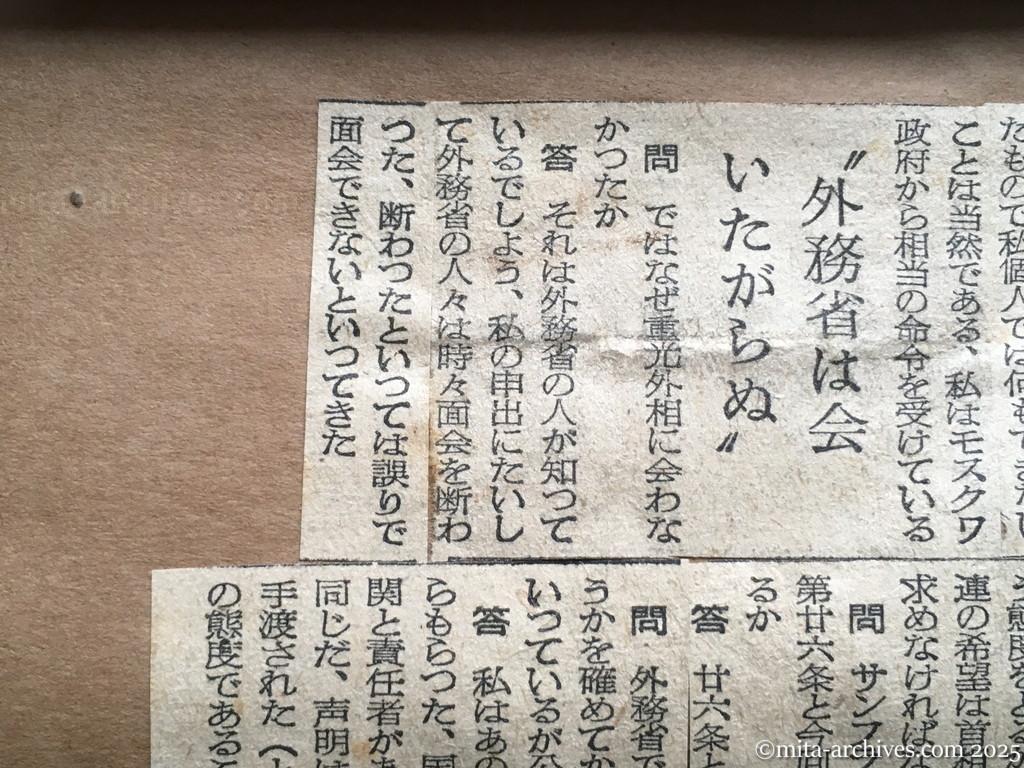 たもので私個人では何もできない
ことは当然である、私はモスクワ
政府から相当の命令を受けている
〝外務省は会
いたがらぬ〟
問　ではなぜ重光外相に会わな
かつたか
答　それは外務省の人が知つて
いるでしよう、私の申出にたいし
て外務省の人々は時々面会を断わ
つた、断わつたといつては誤りで
面会できないといつてきた
連の希望は首相
求めなければな
問　サンフ
第廿六条と今回
るか
答　廿六条と
問　外務省で
うかを確めてか
いつているが公
答　私はあの
らもらつた、国
関と責任者があ
同じだ、声明は
手渡された（
の態度であるこ
©mita-archives.com 2025